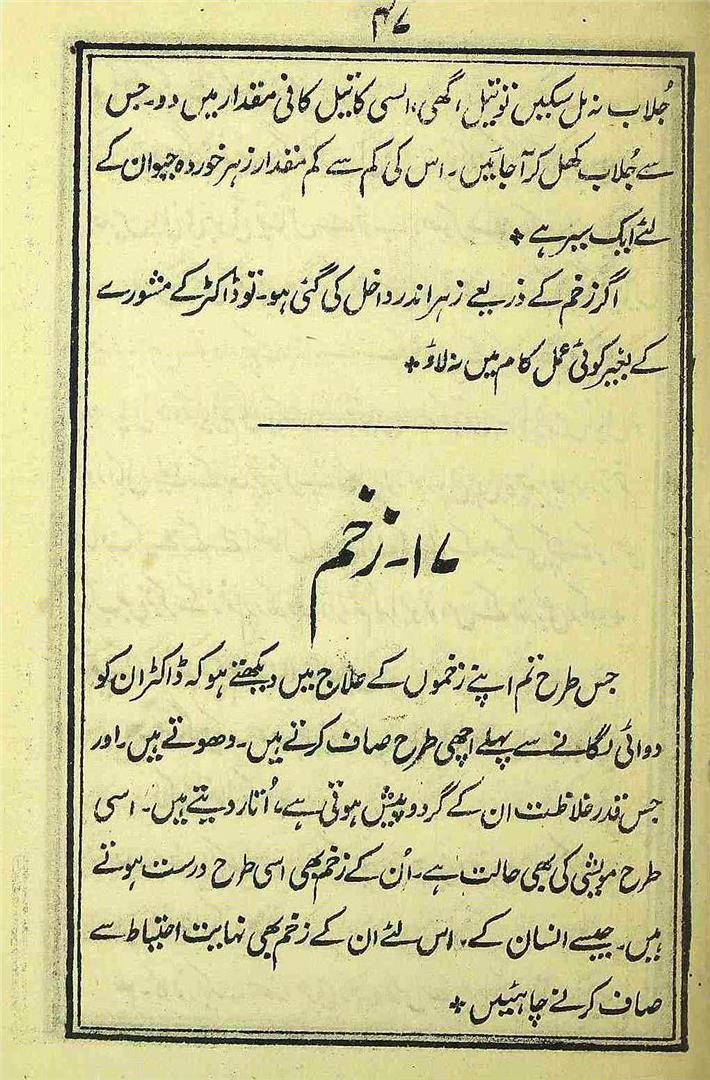 ۴۷
جُلاب نہ مل سکیں تو تیل، گھی، السی کا تیل کافی مقدار میں دو۔ جس
سے جُلاب کھل کر آ جائیں۔ اس کی کم سے کم مقدار زہر خوردہ حیوان کے
لئے ایک سیر ہے ٭
اگر زخم کے ذریعے زہر اندر داخل کی گئی ہو۔ تو ڈاکٹر کے مشورے
کے بغیر کوئی عمل کام میں نہ لاؤ ٭
۱۷۔ زخم
جس طرح تم اپنے زخموں کے علاج میں دیکھتے ہو کہ ڈاکٹر ان کو
دوائی لگانے سے پہلے اچھی طرح صاف کرتے ہیں۔ دھوتے ہیں۔ اور
جس قدر غلاظت ان کے گرد و پیش ہوتی ہے، اُتار دیتے ہیں۔ اسی
طرح مویشی کی بھی حالت ہے۔ اُن کے زخم بھی اسی طرح درست ہوتے
ہیں۔ جیسے انسان کے۔ اس لئے ان کے زخم بھی نہایت احتیاط سے
صاف کرنے چاہئیں ٭